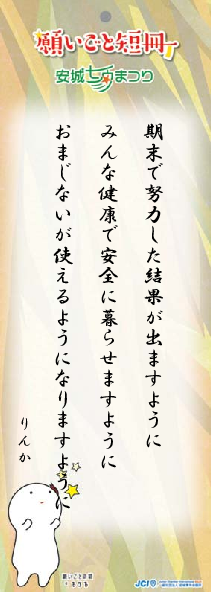 願いごと短冊
安城七夕まつり
期末で努力した結果が出ますように
みんな健康で安全に暮らせますように
おまじないが使えるようになりますように
りんか
願いごと短冊
JCI